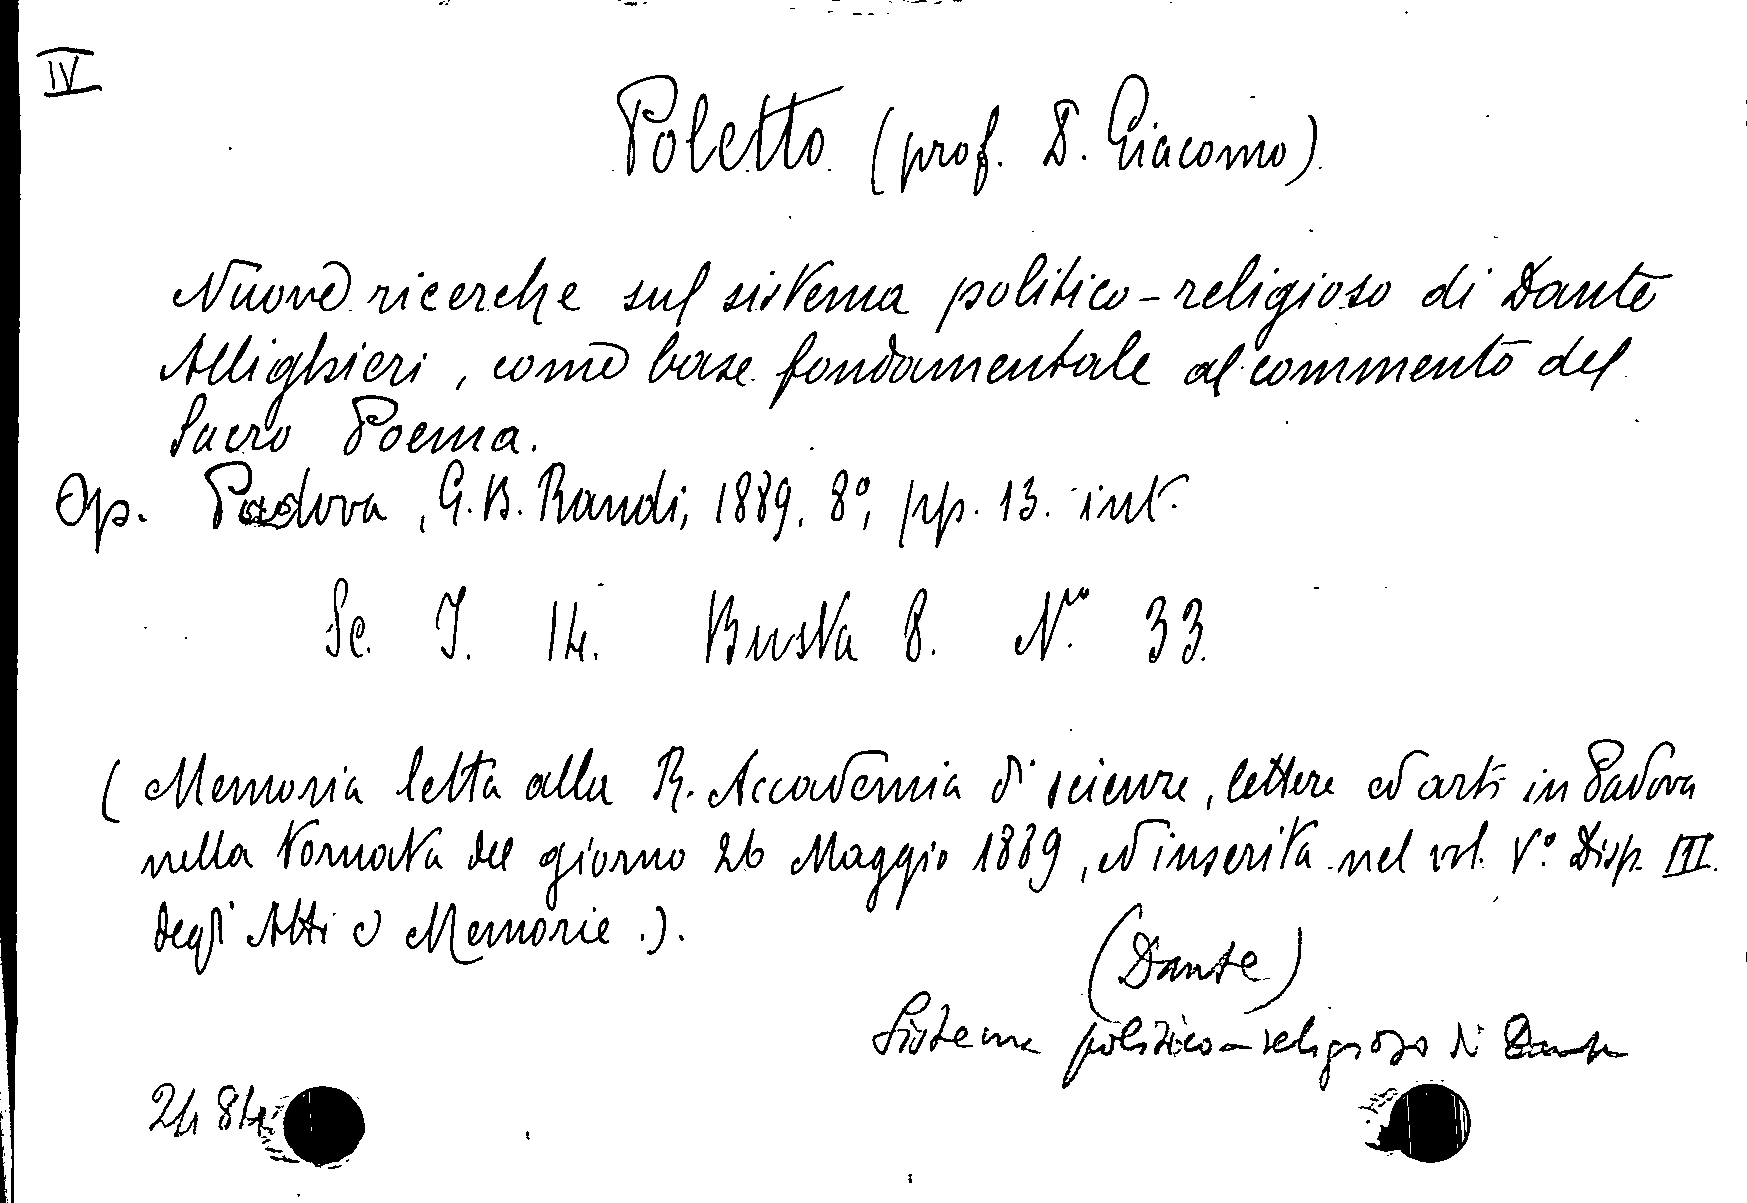 IV
Poletto (prof. D. Giacomo)
Nuove ricerche sul sistema politico-religioso di Dante
Allighieri, come base fondamentale al commento del
Sacro Poema.
Op. Padova, G. B. Randi, 1889. 8°, pp. 13. int.
Sc. I. 14. Busta 8. N.ro 33.
(Memoria letta alla R. Accademia di scienze, lettere ed arti in Padova
nella tornata del giorno 26 Maggio 1889, ed inserita nel vol. V.° Disp. III.
degli Atti e Memorie.).
(Dante)
Sistema politico-religioso di Dante
2484